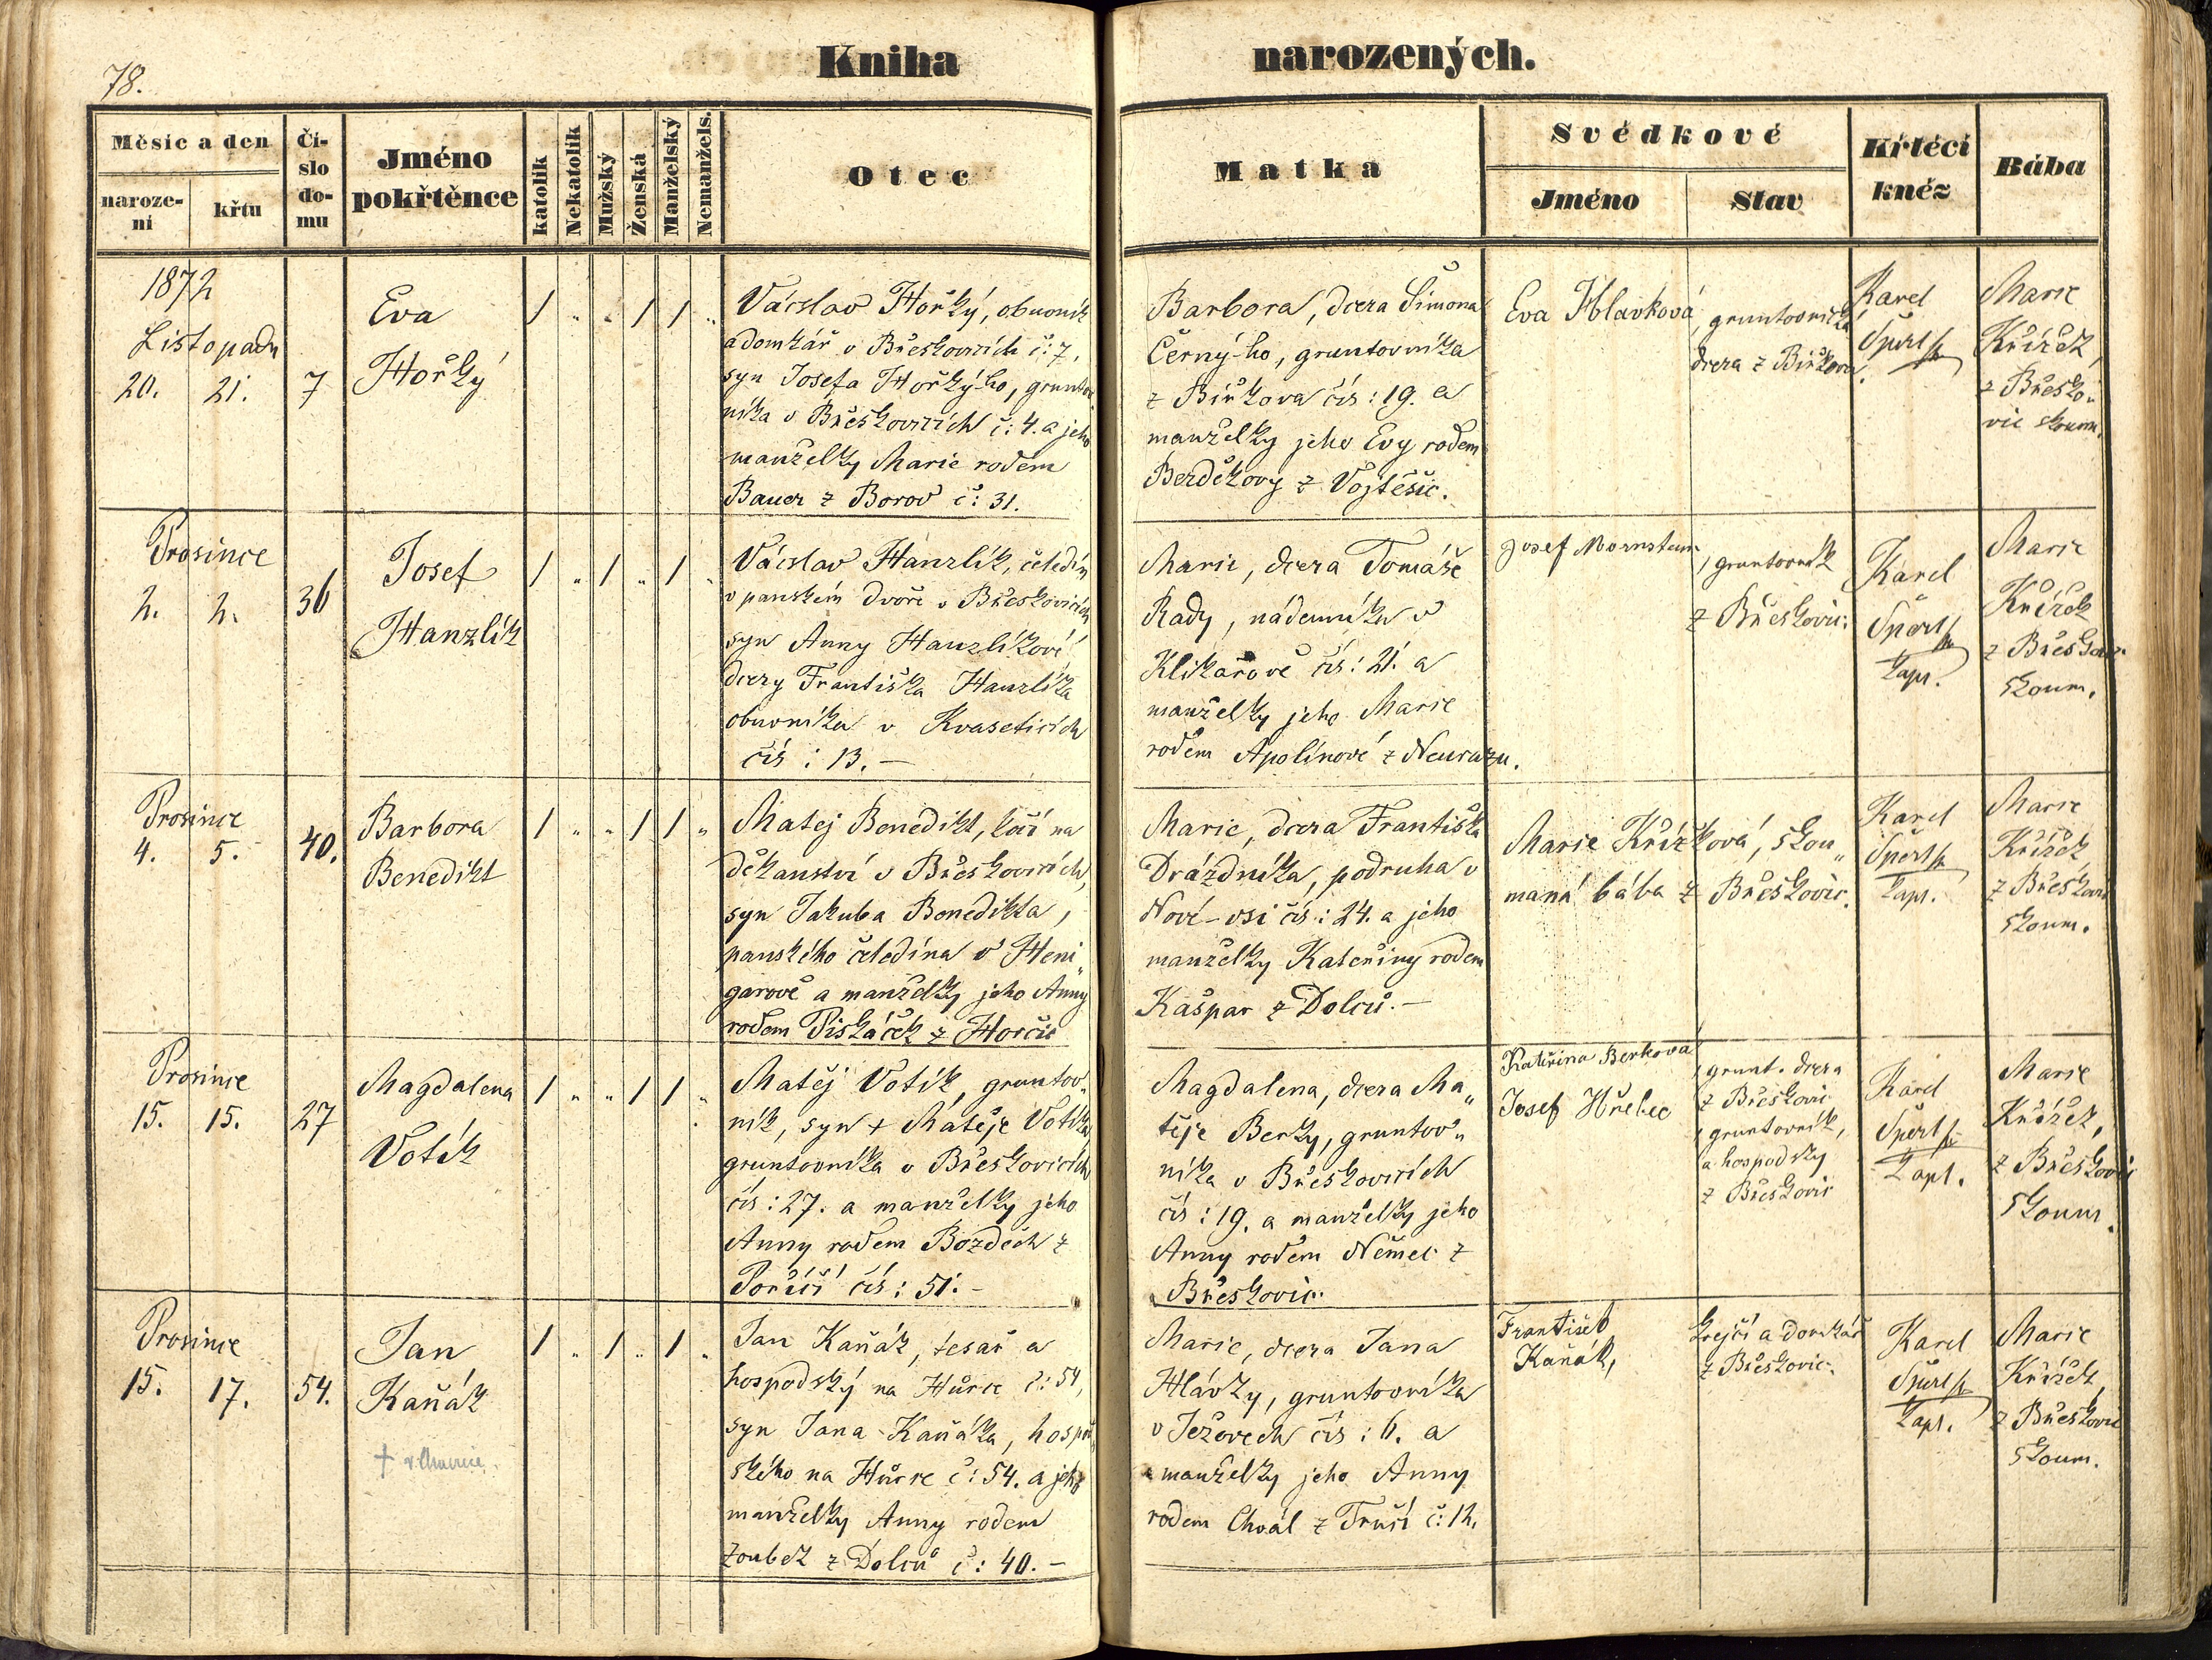 78.
Kniha narozených.
Měsíc a den
naroze-
ní
křtu
Čí-
slo
do-
mu
Jméno
pokřtěnce
katolík
Nekatolík
Mužský
Ženská
Manželský
Nemanžels.
Otec
Matka
Svědkové
Jméno
Stav
Křtící
kněz
Bába
1872
Listopadu
20. 21. 7
Eva
Hořký
/ „ „ / / „
Václav Hořký, obuvník
a domkář v Břeskovicích č: 7,
syn Josefa Hořký-ho, gruntov
níka v Břeskovicích č: 4. a jeho
manželky Marie rodem
Bauer z Borov č: 31.
Barbora, dcera Šimona
Černý-ho, gruntovníka
z Biřkova čís: 19. a
manželky jeho Evy rodem
Berděkovy z Vojtěšic.
Eva Hlavková
, gruntovnická
dcera z Biřkova.
Karel
Špert
Marie
Křížek,
z Břesko„
vic skoum.
Prosince
2. 2. 36
Josef
Hanzlík
/ „ / „ / „
Václav Hanzlík, čeledín
v panském dvoře v Břeskovicích
syn Anny Hanzlíkové
dcery Františka Hanzlíka
obuvníka v Kvaseticích
čís: 13. —
Marie, dcera Tomáše
Rady, nádenníka v
Klikařově čís: 21. a
manželky jeho Marie
rodem Apolínové z Neurazu.
Josef Mornstein
, gruntovník
z Břeskovic.
Karel
Špert
kapl.
Marie
Křížek
z Břeskovic
skoum.
Prosince
4. 5. 40.
Barbora
Benedikt
/ „ „ / / „
Matěj Benedikt, kočí na
děkanství v Břeskovicích,
syn Jakuba Benedikta,
panského čeledína v Heni„
garově a manželky jeho Anny
rodem Piskáček z Horčic
Marie, dcera Františka
Drázdníka, podruha v
Nové-vsi čís: 24. a jeho
manželky Kateřiny rodem
Kašpar z Dolců. —
Marie Křížková, skou„
maná bába z Břeskovic.
Karel
Špert
kapl.
Marie
Křížek,
z Břeskovic
skoum.
Prosince
15. 15. 27
Magdalena
Votík
/ „ „ / / „
Matěj Votík, gruntov„
ník, syn + Matěje Votíka,
gruntovníka v Břeskovicích
čís: 27. a manželky jeho
Anny rodem Bozděch z
Poříčí čís: 51. —
Magdalena, dcera Ma„
těje Berky, gruntov„
níka v Břeskovicích
čís: 19. a manželky jeho
Anny rodem Němec z
Břeskovic.
Kateřina Berkova
Josef Hřebec
, grunt. dcera
z Břeskovic
, gruntovník,
a hospodský
z Břeskovic
Karel
Špert
kapl.
Marie
Křížek,
z Břeskovic
skoum.
Prosince
15. 17. 54.
Jan
Kaňák
/ „ / „ / „
Jan Kaňák, tesař a
hospodský na Hůrce č: 54,
syn Jana Kaňáka, hospod
ského na Hůrce č: 54. a jeho
manželky Anny rodem
Zoubek z Dolců č: 40. —
Marie, dcera Jana
Hlávky, gruntovníka
v Ježovech čís: 6. a
manželky jeho Anny
rodem Chvál z Trusí č: 12.
František
Kaňák,
krejčí a domkář
z Břeskovic.
Karel
Špert
kapl.
Marie
Křížek,
z Břeskovic
skoum.